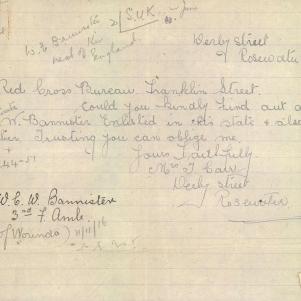 S.U.K.
W. E. Bannister
next of Kin
England
Derby Street
Rosewater
Red Cross Bureau Franklin Street.
Could you kindly find out a
W. Bannister Enlisted in this state & also
Trusting you can oblige me
Yours Faithfully
Mrs
Derby street
Rosewater
W. E. W. Bannister
3rd F. Amb.
of Wounds) 11/11/16